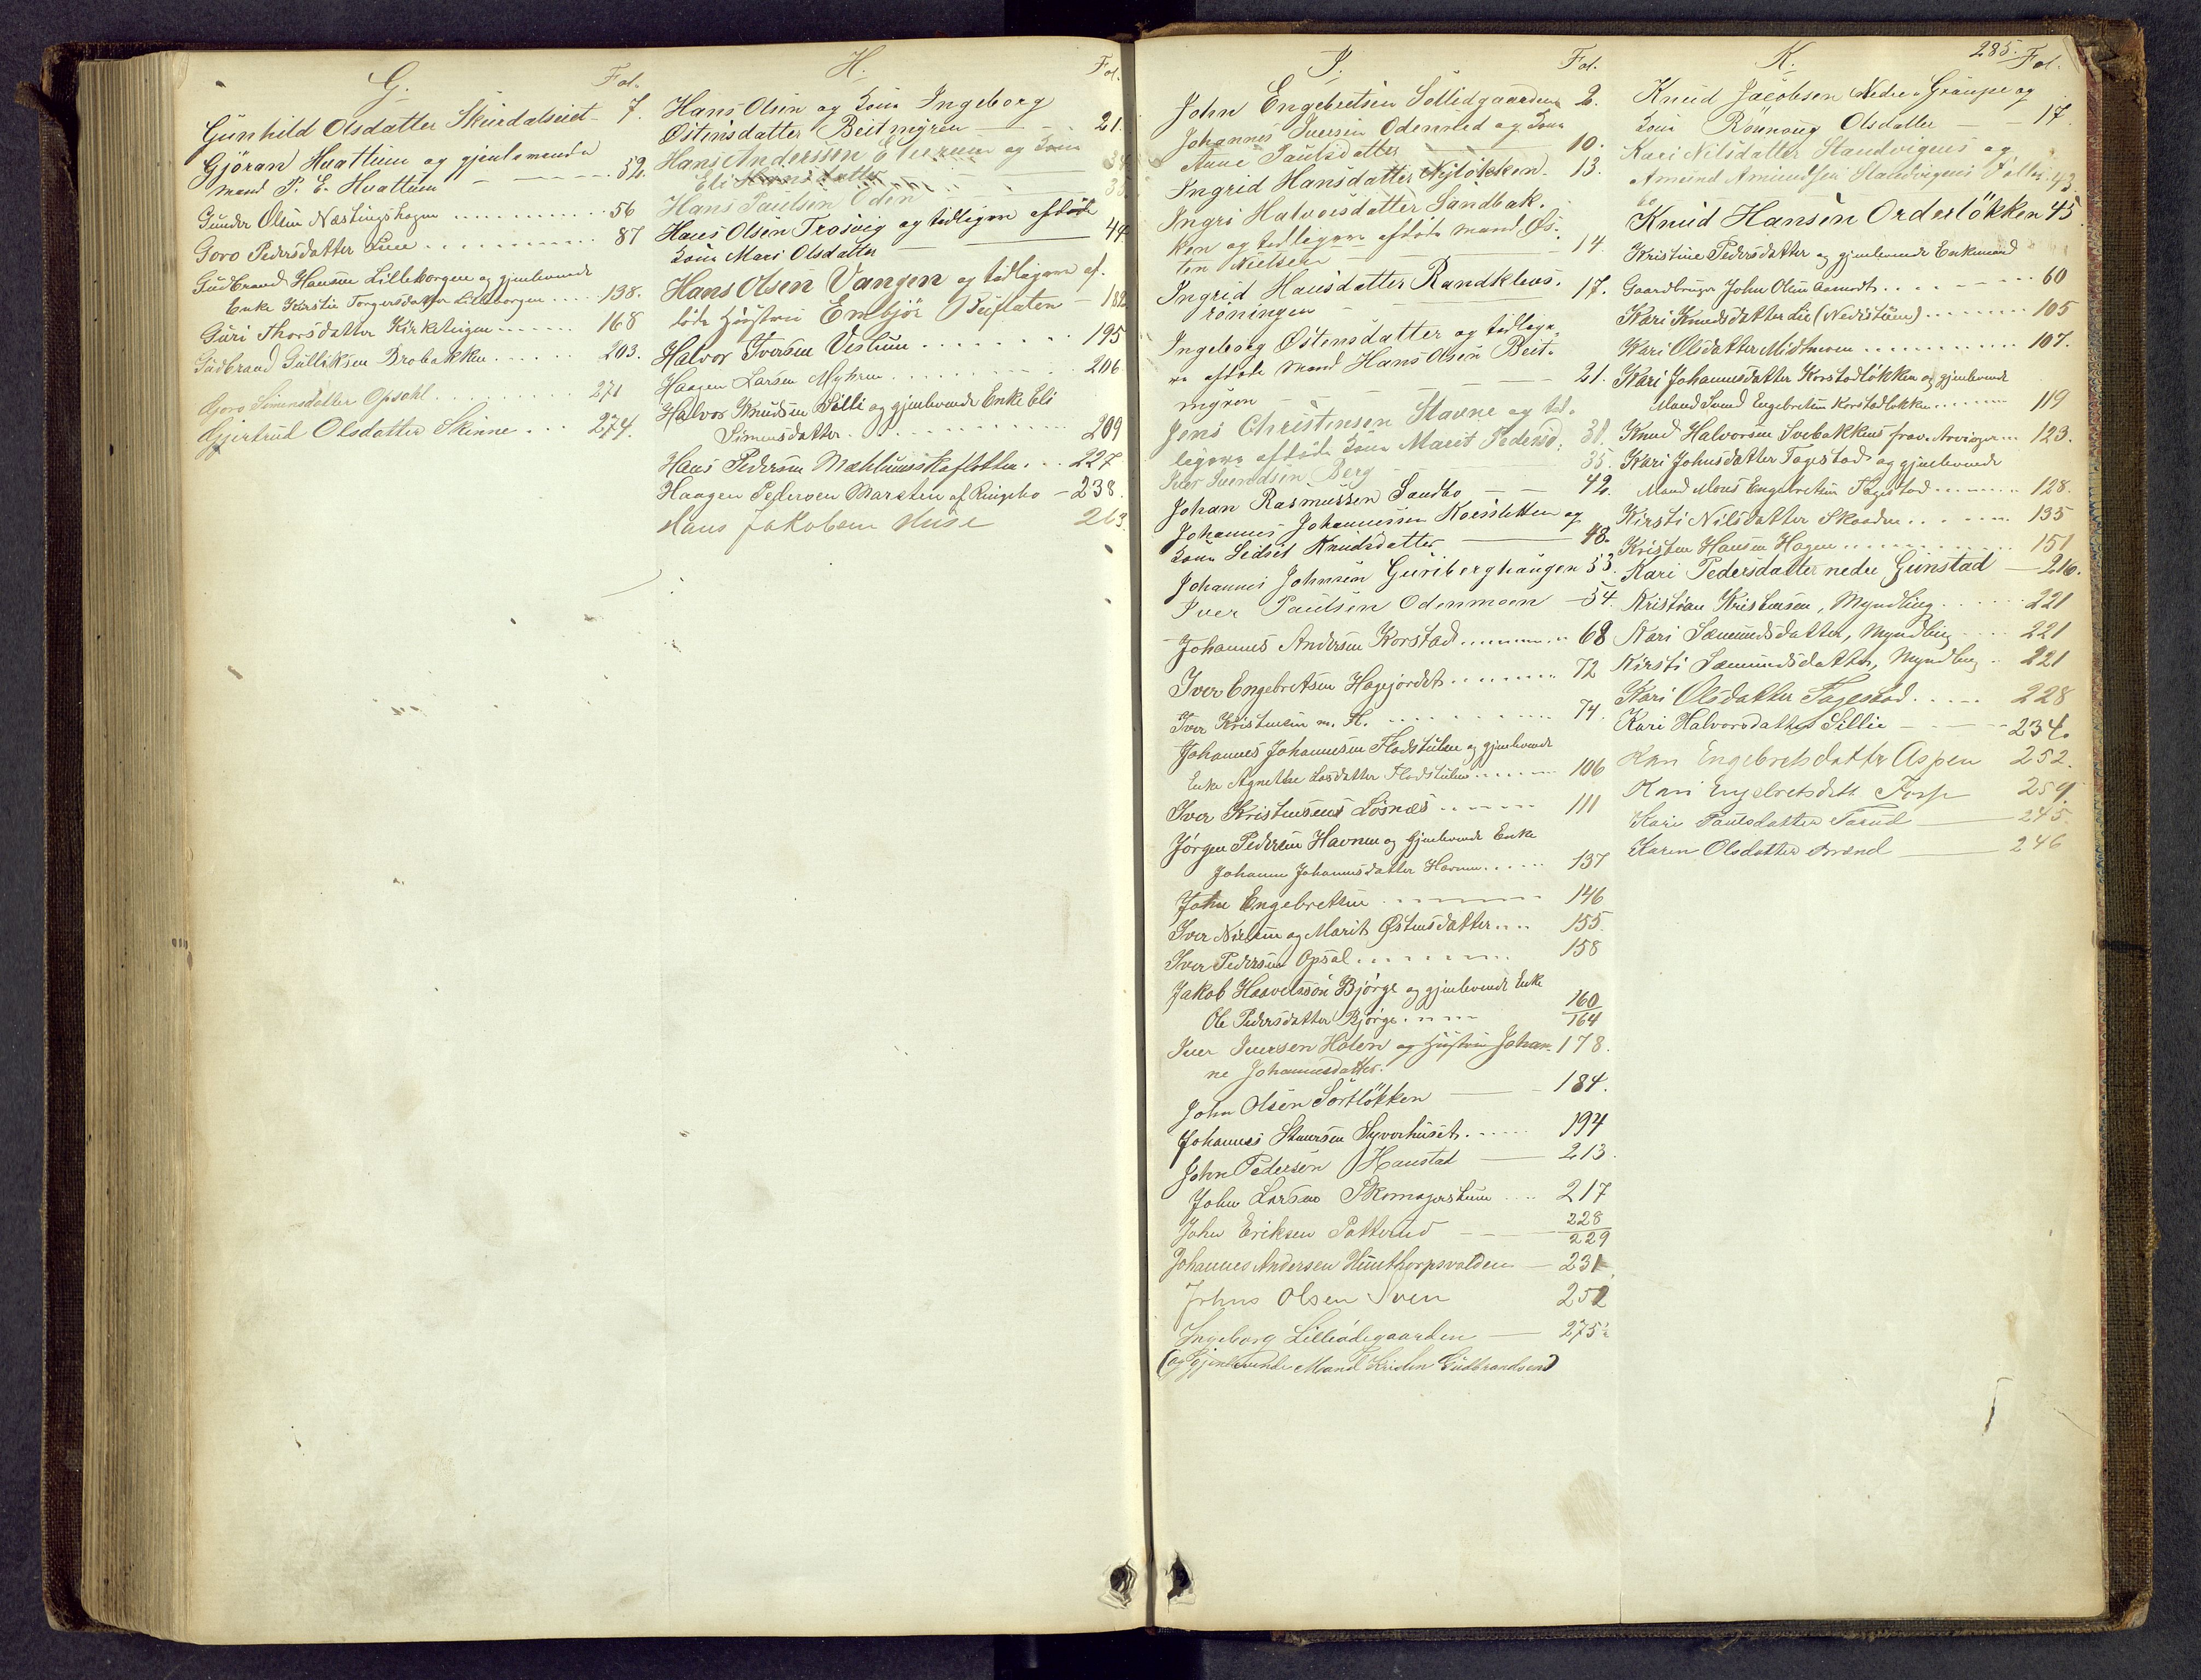 G. Fol.
Gunhild Olsdatter Skurdalseiet - 7.
Gjöran Hvattum og gjenlevende
mand P. E. Hvattum - - - - 52.
Gunder Olsen Næstingshagen ............ 56
Goro Pedersdatter Lien ............ 87
Gudbrand Hansen Lilleborgen og gjenlevende
Enke Kirstie Torgersdatter Lilleborgen .... 138.
Guri Thorsdatter Kirketeigen ....... 168
Gudbrand Gulliksen Brobakken ...... 203.
Gjoro Simensdatter Opsahl ......... 271
Gjertrud Olsdatter Skinne ... 274.
H. Fol.
Hans Olsen og Kone Ingeborg
Østensdatter Beitmyren - - - 21.
Hans Anderssen og Kone
Eli Hansdatter
Hans Paulsen Oden
Hans Olsen Trosvig og tidligere afdöde
Kone Mari Olsdatter — 44
Hans Olsen Vangen og tidligere af-
döde Hustru Embjör Buflaten - 182
Halvor Iversen Veslum ........ 195
Haagen Larsen Myhren ........ 206
Halvor Knudsen Lilli og gjenlevende Enke Eli
Simensdatter ............ 209
Hans Pedersen Mæhlumsskaflotten ... 227
Haagen Pedersen Marsten af Ringebo - 238.
Hans Jakobsen Huse 263.
I. Fol.
John Engebretsen Sollidgaarden 2.
Johannes Iversen Odenrud og Kone
Anne Paulsdatter — 10.
Ingrid Hansdatter Nylökken - 13.
Ingri Halvorsdatter Sandbak-
ken og tidligere afdöde mand Øs-
ten Nielsen - - - 14.
Ingrid Hansdatter Randklevs-
röningen - 17.
Ingeborg Østensdatter og tidlige-
re afdöde Mand Hans Olsen Beit-
myren - - - - 21.
Jens Christensen Stavne og tid-
ligere afdöde Kone Marit Pedersd. 31.
Iver Svendsen Berg - 35.
Johan Rasmussen Sandbo - - 42.
Johannes Johannessen Koesletten og
Kone Sidsel Knudsdatter — 48.
Johannes Johnsen Guriberghaugen 53.
Iver Paulsen Odenmoen - 54.
Johannes Andersen Korstad ......... 68
Iver Engebretsen Hagejordet ........ 72
Iver Kristensen m. H. ........... 74.
Johannes Johannesen Flodstulen og gjenlevende
Enke Agnethe Larsdatter Flodstulen ...... 106
Iver Kristensens Losnæs ........ 111
Jörgen Pedersen Havnen og Gjenlevende Enke
Johanne Johannesdatter Havnen ..... 137
John Engebretsen ........ 146
Iver Nielsen og Marit Østensdatter .... 155.
Iver Pedersen Opsal ......... 158
Jakob Haavelssøn Bjørge og gjenlevende Enke
Ole Pedersdatter Bjørge ..... 160
164
Iver Iversen Holen og Hustru Johan- 178.
ne Johannesdatter.
John Olsen Sortlökken — - 184.
Johannes Steversen Syverhuset ...... 194
John Pedersen Haustad — 213.
John Larsen Skomagerstuen .... 217
John Eriksen Pottrud - - - 228
229
Johannes Andersen Hunthorpsvolden - 231.
Johns Olsen Sven 252
Ingeborg Lilleödegaarden — 275½
(og gjenlevende Mand Kristen Gudbrandsen)
K. 285. Fol.
Knud Jacobsen Nedre-Graupe og
Kone Rönnaug Olsdatter - - 17.
Kari Nilsdatter Standvigens og
Amund Amundsen Standvigens 43.
Knud Hansen Orderlökken 45
Kristine Pedersdatter og gjenlevende Enkemand
Gaardbruger John Olsen Aamodt ....... 60
Kari Knudsdatter Lie (Nedistuen) ........ 105
Kari Olsdatter Midtmoen ............ 107.
Kari Johannesdatter Korstadløkken og gjenlevende
Mand Svend Engebretsen Korstadløkken ........ 119
Knud Halvorsen Svebakkens frav. Arvinger ... 123.
Kari Johnsdatter Fagestad og gjenlevende
Mand Mons Engebretsen Fagestad ......... 128.
Kirsti Nilsdatter Skaaden ........ 135
Kristen Hansen Hagen ............ 151
Kari Pedersdatter nedre Gunstad — 216.
Kristian Kristensen, Myndling ...... 221
Kari Sæmundsdatter, Myndling .... 221
Kirsti Sæmundsdatter, Myndling .. 221
Kari Olsdatter Fagestad ..... 228
Kari Halvorsdatter Lillie - - - 234.
Kari Engebretsdatter Aspen 252.
Kari Engebretsdatt Forp 259
Kari Paulsdatter Forud — 245.
Karen Olsdatter Brænd — 246